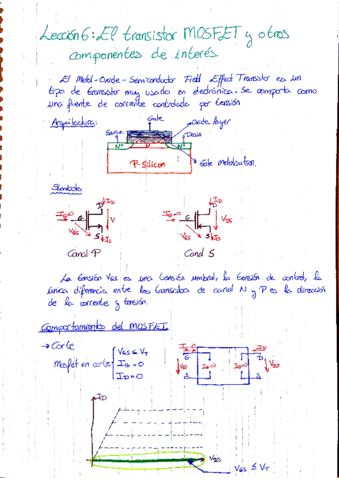 Lección 6: El transistor MOSFET y otros
componentes de interés
El Metal-Oxide-Semiconductor Field Effect Transistor es un
tipo de transistor muy usado en electrónica. Se comporta como
una fuente de corriente controlado por tensión
Arquitectura:
Gate
Oxide layer
Source
Drain
N+
N+
P-Silicon
Gate Metalisation.
Símbolo
ID
D
IG=0
G
V
VGS
S
IS
Canal P
ID
D
IG=0
G
VDS
VGS
S
IS
Canal S
La tensión VGS es una tensión umbral, la tensión de control, la
única diferencia entre los transistores de canal N y P es la dirección
de la corriente y tensión.
Comportamientos del MOSFET.
→ Corte
Mosfet en corte
VGS ≤ VT
IG = 0
ID = 0
IG=0
G
VGS
S
IG=0
ID=0
ID
D
VDS
S
ID
VDS
VGS ≤ VT